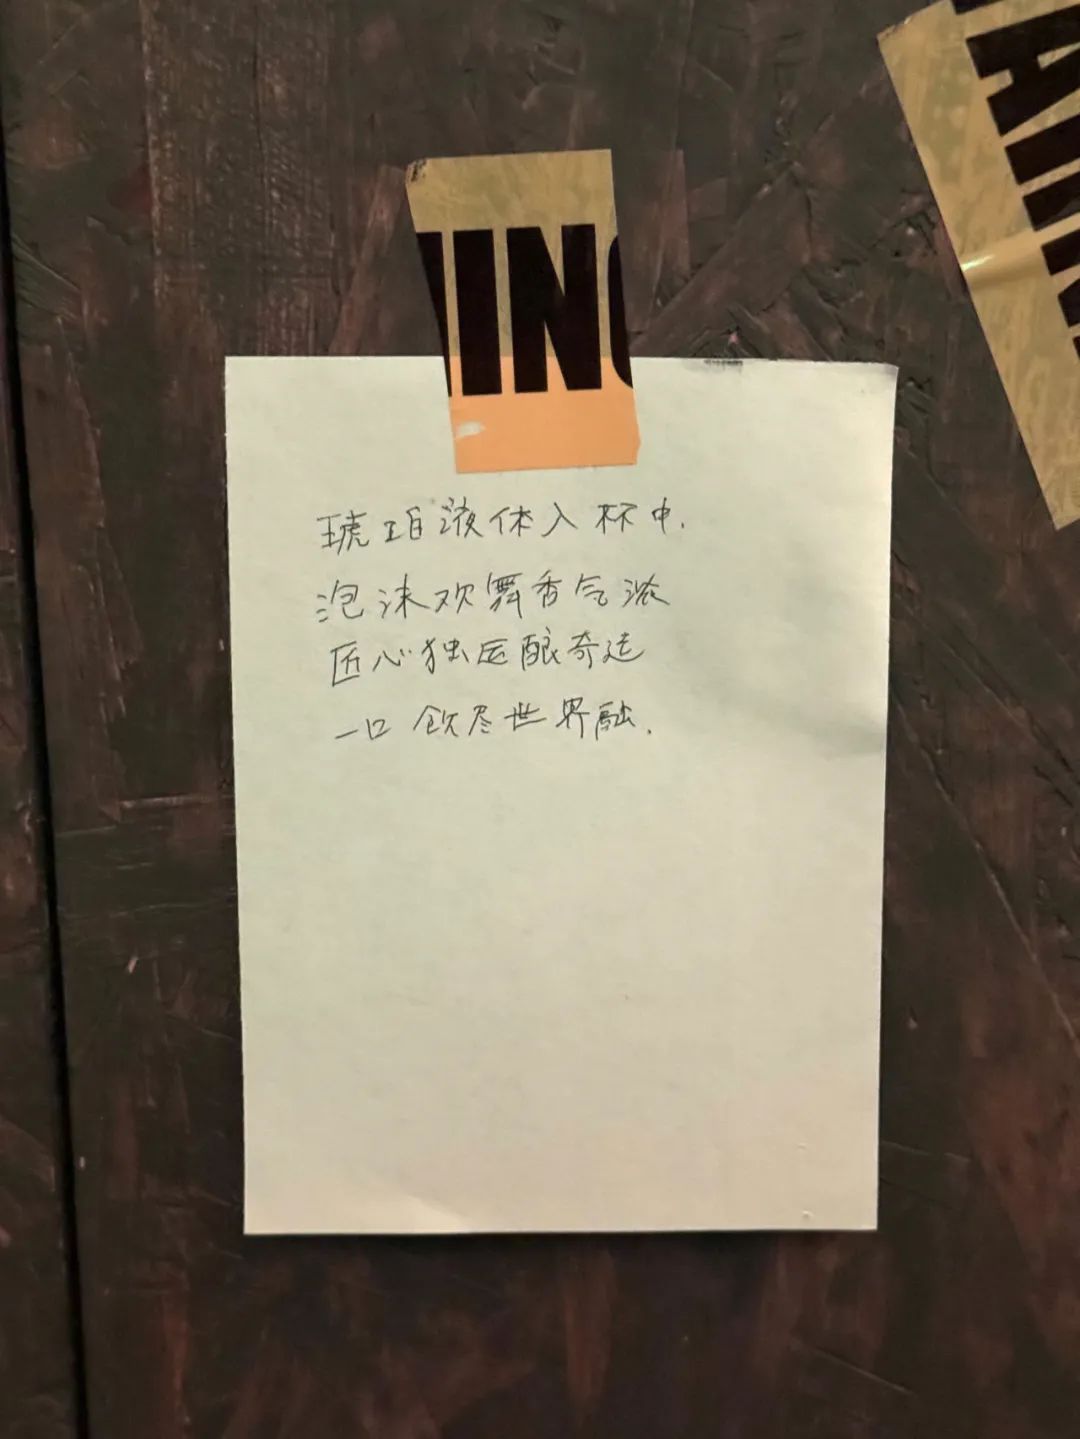 IN
琥珀液体入杯中.
泡沫欢舞香气浓
匠心独运酿奇迹
一口饮尽世界融.